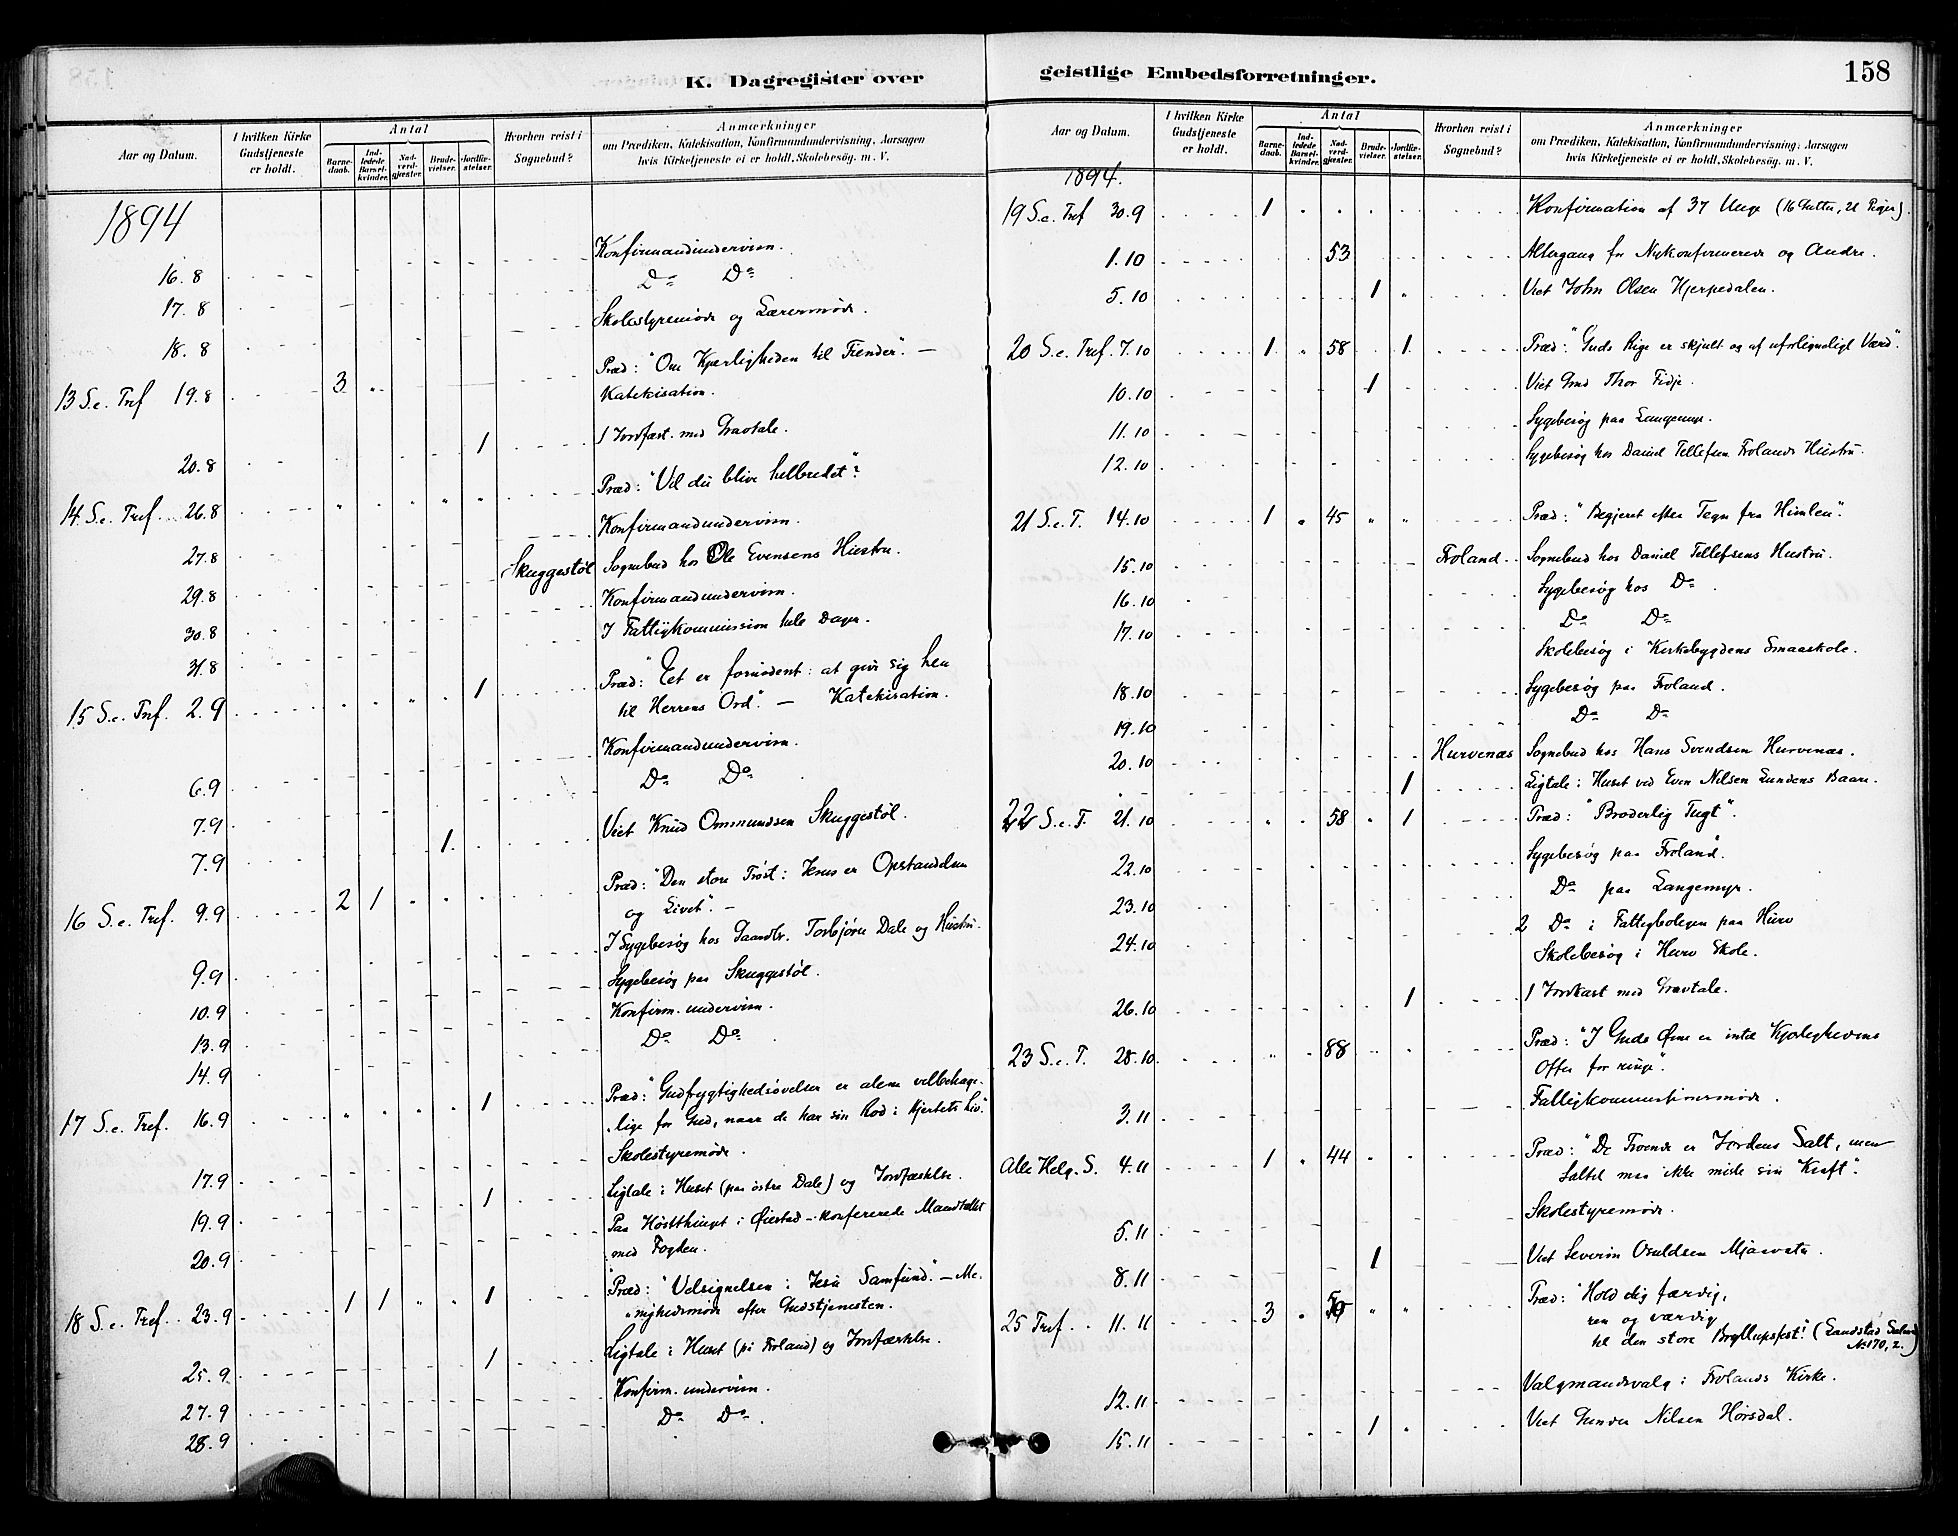 K. Dagregister over
Aar og Datum.
I hvilken Kirke Gudstjeneste er holdt.
Antal
Barnedaab.
Indledede Barselkvinder.
Nadverdgjæster.
Brudevielser.
Jordfæstelser.
Hvorhen reist i Sognebud?
Anmærkninger
om Prædiken, Katekisation, Konfirmandundervisning, Aarsagen
hvis Kirketjeneste ei er holdt, Skolebesög. m. V.
1894
16.8 Konfirmandundervisn.
17.8 Do Do
18.8 Skolestyremöde og Lærermöde.
13 S.e. Tref 19.8 3 " Præd: "Om Kjærligheden til Fiender". —
Katekisation.
20.8 1 1 Jordfæst. med Gravtale.
14 S.e. Tref. 26.8 " " " " " Præd: "Vil du blive helbredet"?
27.8 Konfirmandundervisn.
29.8 Skuggestöl Sognebud hos Ole Evensens Hustru.
30.8 Konfirmandundervisn.
31.8 I Fattigkommission hele Dagen.
15 S.e. Tref. 2.9 " " " " 1 Præd: "Et er fornödent: at give sig hen
til Herrens Ord". — Katekisation.
6.9 Konfirmandundervisn.
7.9 Do Do
7.9 1 Viet Knud Ommundsen Skuggestöl.
16 S.e. Tref. 9.9 2 1 " " " Præd: "Den store Tröst: Jesus er Opstandelsen
og Livet". —
9.9 I Sygebesög hos Gaardbr. Torbjörn Dale og Hustru.
10.9 Sygebesög paa Skuggestöl.
13.9 Konfirm. undervisn.
14.9 Do Do
17 S.e. Tref. 16.9 " " " " 1 Præd: "Gudfrygtighedsövelser er alene velbehage-
lige for Gud, naar de har sin Rod i Hjertets Liv".
17.9 Skolestyremöde.
19.9 1 Ligtale i Huset (paa östre Dale) og Jordfæstelse.
20.9 Paa Höstthinget i Öiestad — konfererede Mandtallet
med Fogden.
18 S.e. Tref. 23.9 1 1 " " 1 Præd: "Velsignelsen i Jesu Samfund". — Me-
nighedsmöde efter Gudstjenesten.
25.9 1 Ligtale i Huset (på Froland) og Jordfæstelse.
27.9 Konfirm. undervisn.
28.9 Do Do.
geistlige Embedsforretninger.
158
Aar og Datum.
I hvilken Kirke Gudstjeneste er holdt.
Antal
Barnedaab.
Indledede Barselkvinder.
Nadverdgjæster.
Brudevielser.
Jordfæstelser.
Hvorhen reist i Sognebud?
Anmærkninger
om Prædiken, Katekisation, Konfirmandundervisning, Aarsagen
hvis Kirketjeneste ei er holdt, Skolebesög. m. V.
1894.
19 S.e. Tref 30.9 1 Konfirmation af 37 Unge (16 Gutter, 21 Piger).
1.10 53 Altergang for Nykonfirmerede og Andre.
5.10 1 " Viet John Olsen Hjerpedalen.
20 S.e. Tref. 7.10 1 " 58 1 Præd: "Guds Rige er skjult og af uforligneligt Værd".
10.10 1 Viet Gmd Thor Fidje.
11.10 Sygebesög paa Langemyr.
12.10 Sygebesög hos Daniel Tellefsen Frolands Hustru.
21 S.e.T. 14.10 1 " 45 " " Præd: "Begjæret efter Tegn fra Himlen".
15.10 Froland Sognebud hos Daniel Tellefsens Hustru.
16.10 Sygebesög hos Do
17.10 Do Do
Skolebesög i Kirkebygdens Smaaskole.
18.10 Sygebesög paa Froland.
19.10 Do Do
20.10 Hurvenæs Sognebud hos Hans Svendsen Hurvenæs.
" 1 Ligtale i Huset ved Even Nilsen Lundens Baare.
22 S.e.T. 21.10 " " 58 " 1 Præd: "Broderlig Tugt".
22.10 Sygebesög paa Froland.
23.10 Do paa Langemyr.
24.10 2 Do i Fattigboligen paa Hurv
Skolebesög i Hurv Skole.
26.10 1 1 Jordkast med Gravtale.
23 S.e.T. 28.10 " " 88 " " Præd: "I Guds Öine er intet Kjærlighedens
Offer for ringe".
3.11 Fattigkommissionsmöde.
Alle Helg. S. 4.11 1 " 44 " " Præd: "De Troende er Jordens Salt, men
Saltet maa ikke miste sin Kraft".
5.11 Skolestyremöde.
8.11 1 Viet Severin Osuldsen Mjaavatn.
25 Tref. 11.11 3 " " " Præd: "Hold dig færdig,
ren og værdig
til den store Bryllupsfest"! (Landstad Salme
No 170, 2.)
12.11 Valgmandsvalg i Frolands Kirke.
15.11 1 " Viet Gunder Nilsen Hörsdal.